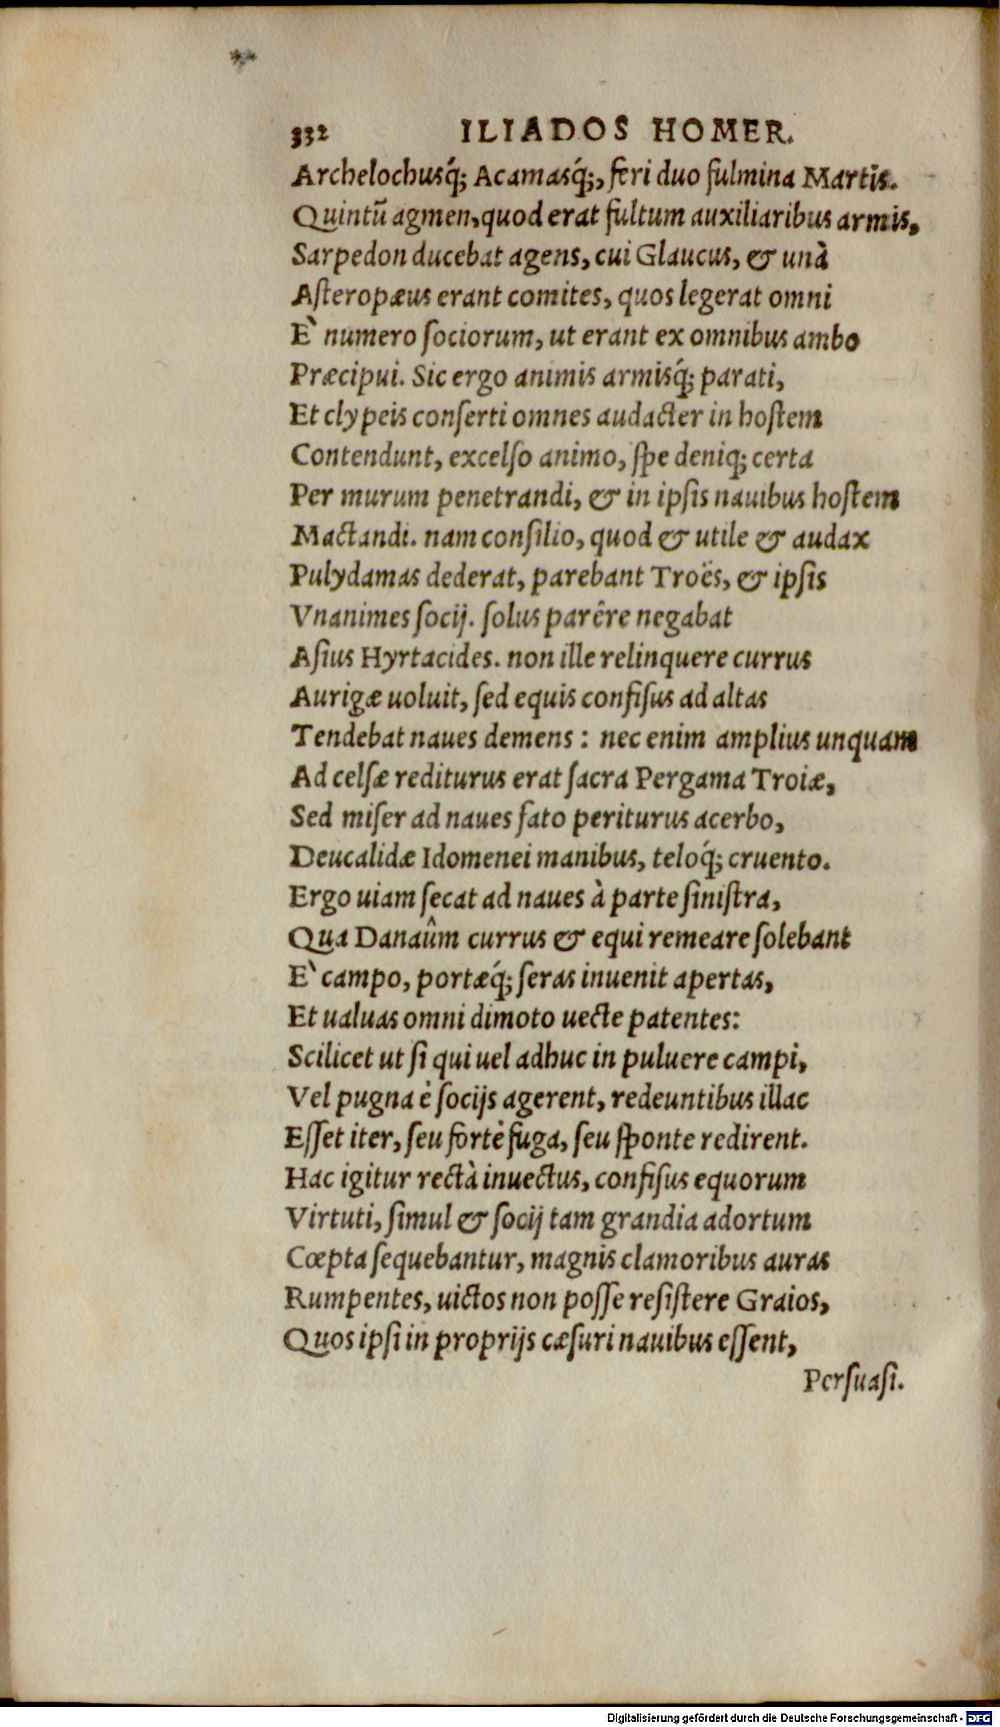 332 ILIADOS HOMER.
Archelochusq́; Acamasq́;, feri duo fulmina Martis.
Quintū agmen, quod erat fultum auxiliaribus armis,
Sarpedon ducebat agens, cui Glaucus, & unà
Aſteropæus erant comites, quos legerat omni
E` numero ſociorum, ut erant ex omnibus ambo
Præcipui. Sic ergo animis armisq́; parati,
Et clypeis conſerti omnes audacter in hoſtem
Contendunt, excelſo animo, ſpe deniq; certa
Per murum penetrandi, & in ipſis nauibus hoſtem
Mactandi. nam conſilio, quod & utile & audax
Pulydamas dederat, parebant Troës, & ipſis
Vnanimes ſocij. ſolus parêre negabat
Aſius Hyrtacides. non ille relinquere currus
Aurigæ uoluit, ſed equis confiſus ad altas
Tendebat naues demens : nec enim amplius unquam
Ad celſæ rediturus erat ſacra Pergama Troiæ,
Sed miſer ad naues fato periturus acerbo,
Deucalidæ Idomenei manibus, teloq́; cruento.
Ergo uiam ſecat ad naues à parte ſiniſtra,
Qua Danaûm currus & equi remeare ſolebant
E` campo, portæq́; ſeras inuenit apertas,
Et ualuas omni dimoto uecte patentes:
Scilicet ut ſi qui uel adhuc in puluere campi,
Vel pugna è ſocijs agerent, redeuntibus illac
Eſſet iter, ſeu fortè fuga, ſeu ſponte redirent.
Hac igitur rectà inuectus, confiſus equorum
Virtuti, ſimul & ſocij tam grandia adortum
Cœpta ſequebantur, magnis clamoribus auras
Rumpentes, uictos non poſſe reſiſtere Graios,
Quos ipſi in proprijs cæſuri nauibus eſſent,
Perſuaſi.
Digitalisierung gefördert durch die Deutsche Forschungsgemeinschaft - DFG